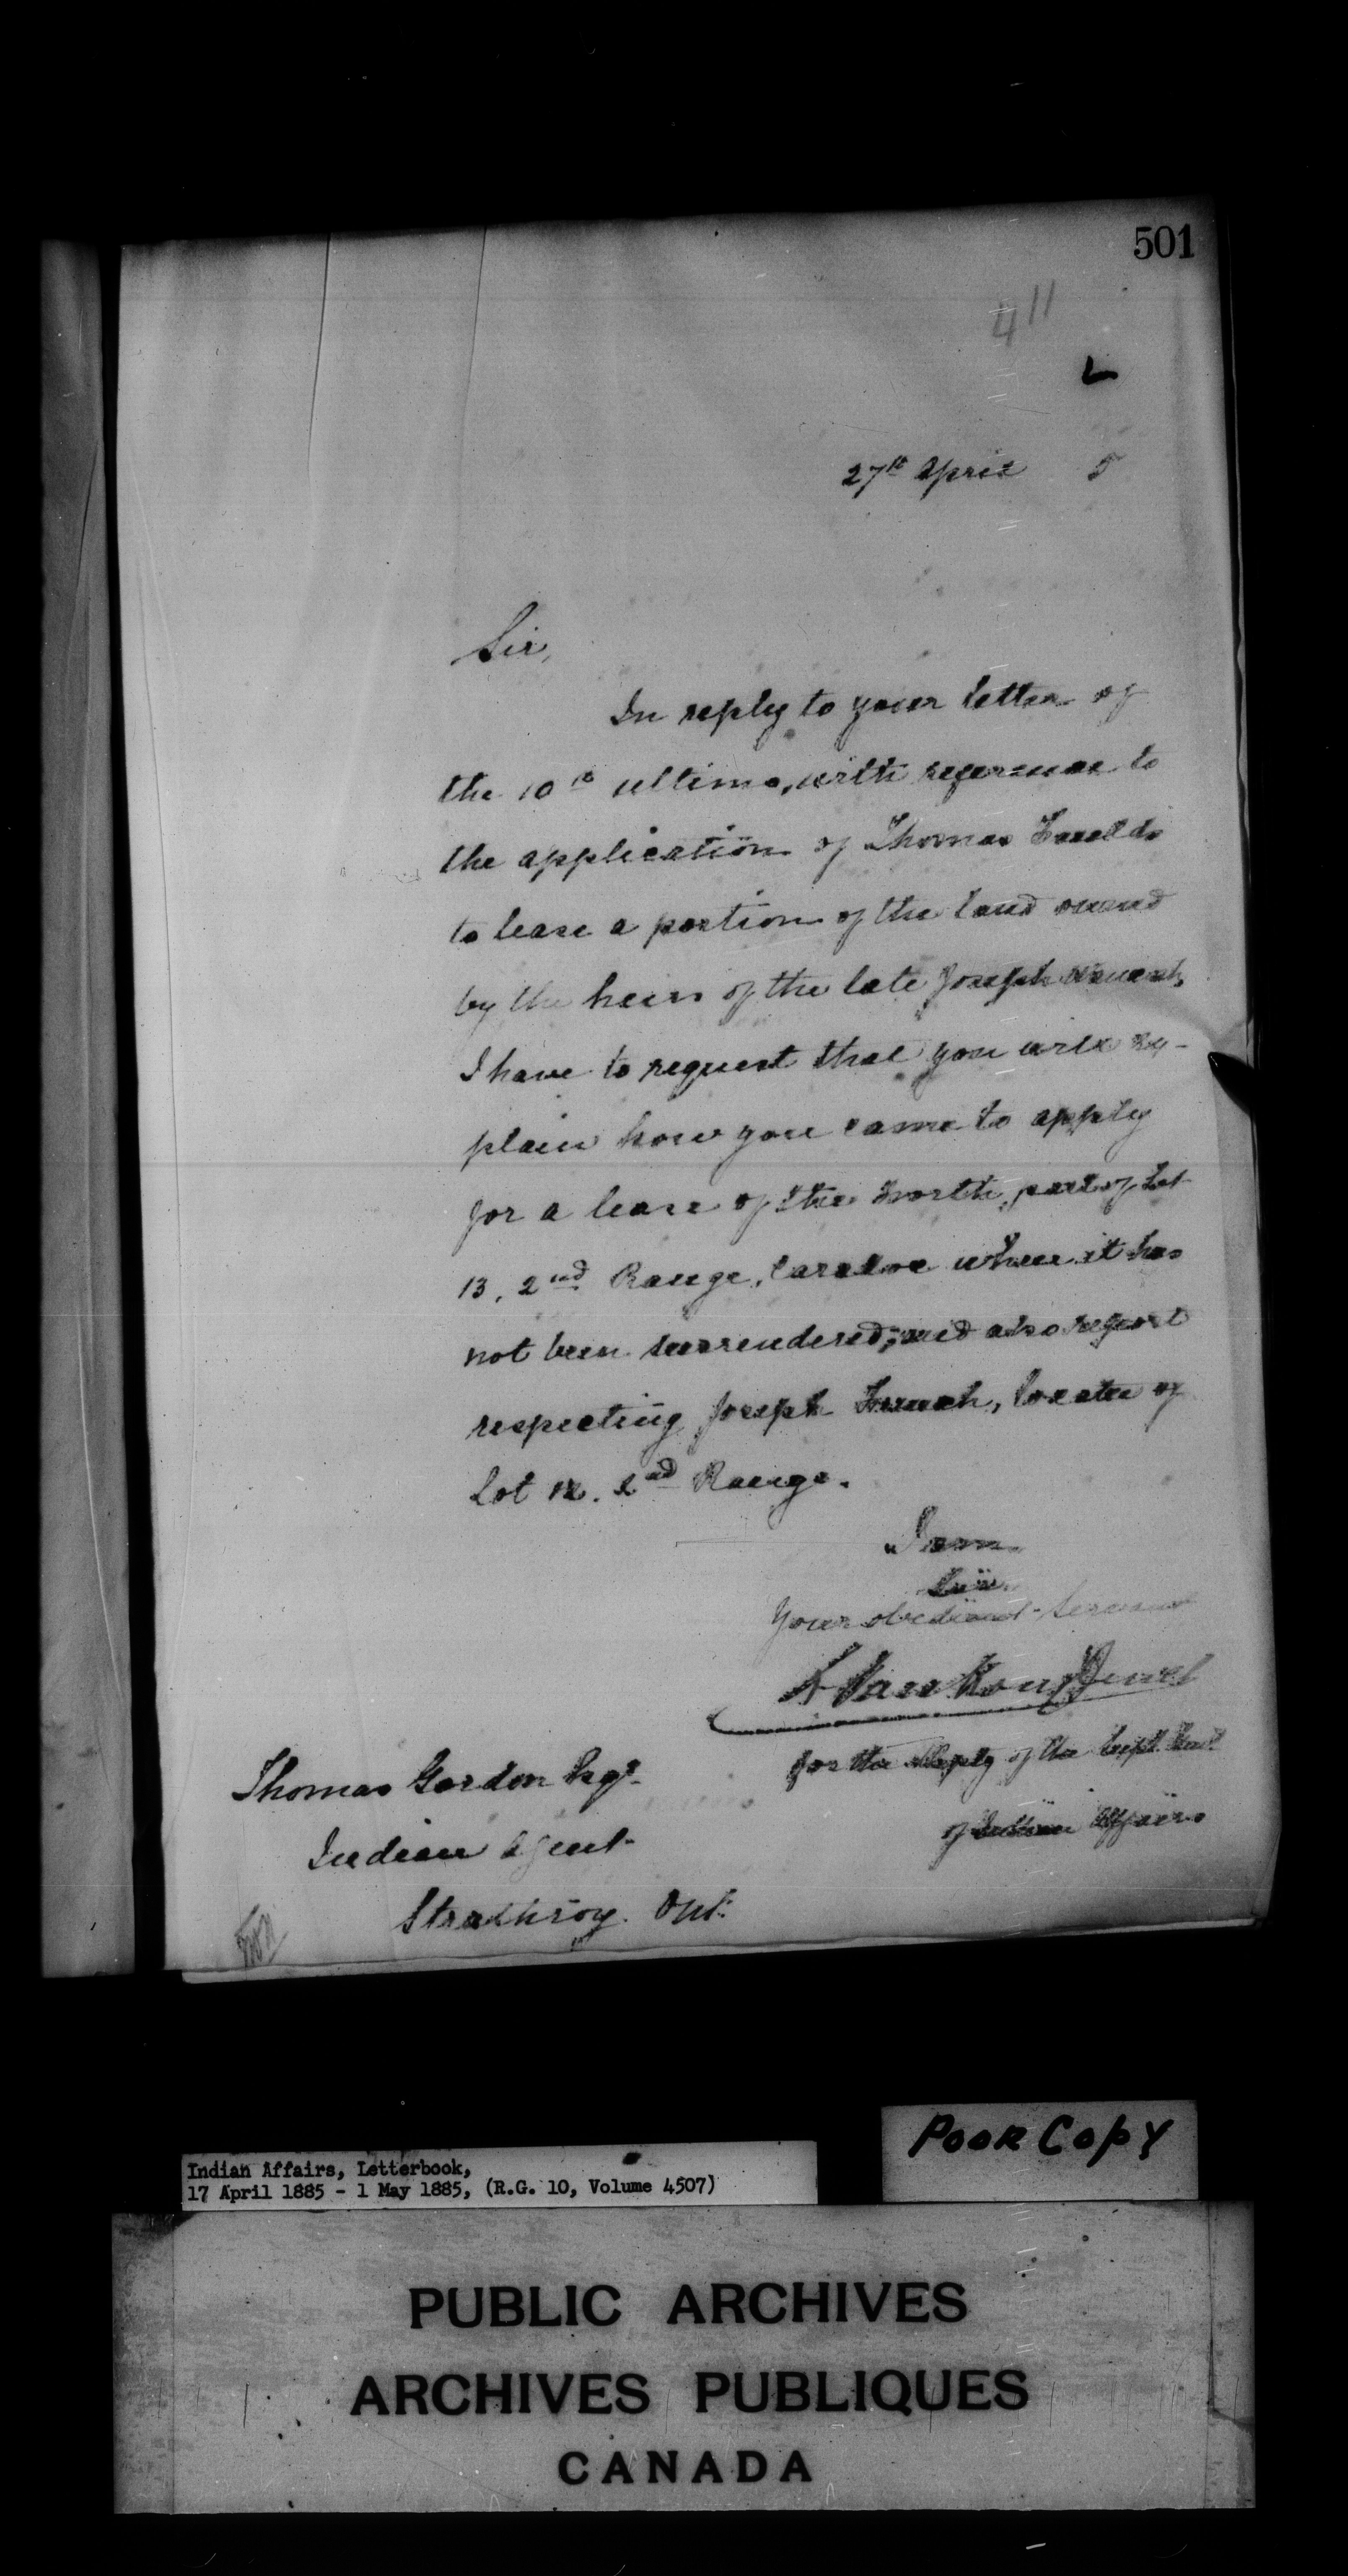 501
411
L
27th April 5
Sir,
In reply to your letter of
the 10th ultimo, with reference to
the application of Thomas
to lease a portion of the land owned
by the heirs of the late Joseph
I have to request that you will ex-
plain how you came to apply
for a lease of the North part of Lot
13, 2nd Range, Caradoc when it has
not been surrendered; and also report
respecting Joseph, locatee of
Lot 12. 2nd Range.
I am
Sir
Your obedient Servant
L Vankoughnet
for the Deputy of the Supt. Genl.
of Indian Affairs
Thomas Gordon Esqr.
Indian Agent
Strathroy. Ont.
Poor Copy
Indian Affairs, Letterbook,
17 April 1885 - 1 May 1885, (R.G. 10, Volume 4507)
PUBLIC ARCHIVES
ARCHIVES PUBLIQUES
CANADA